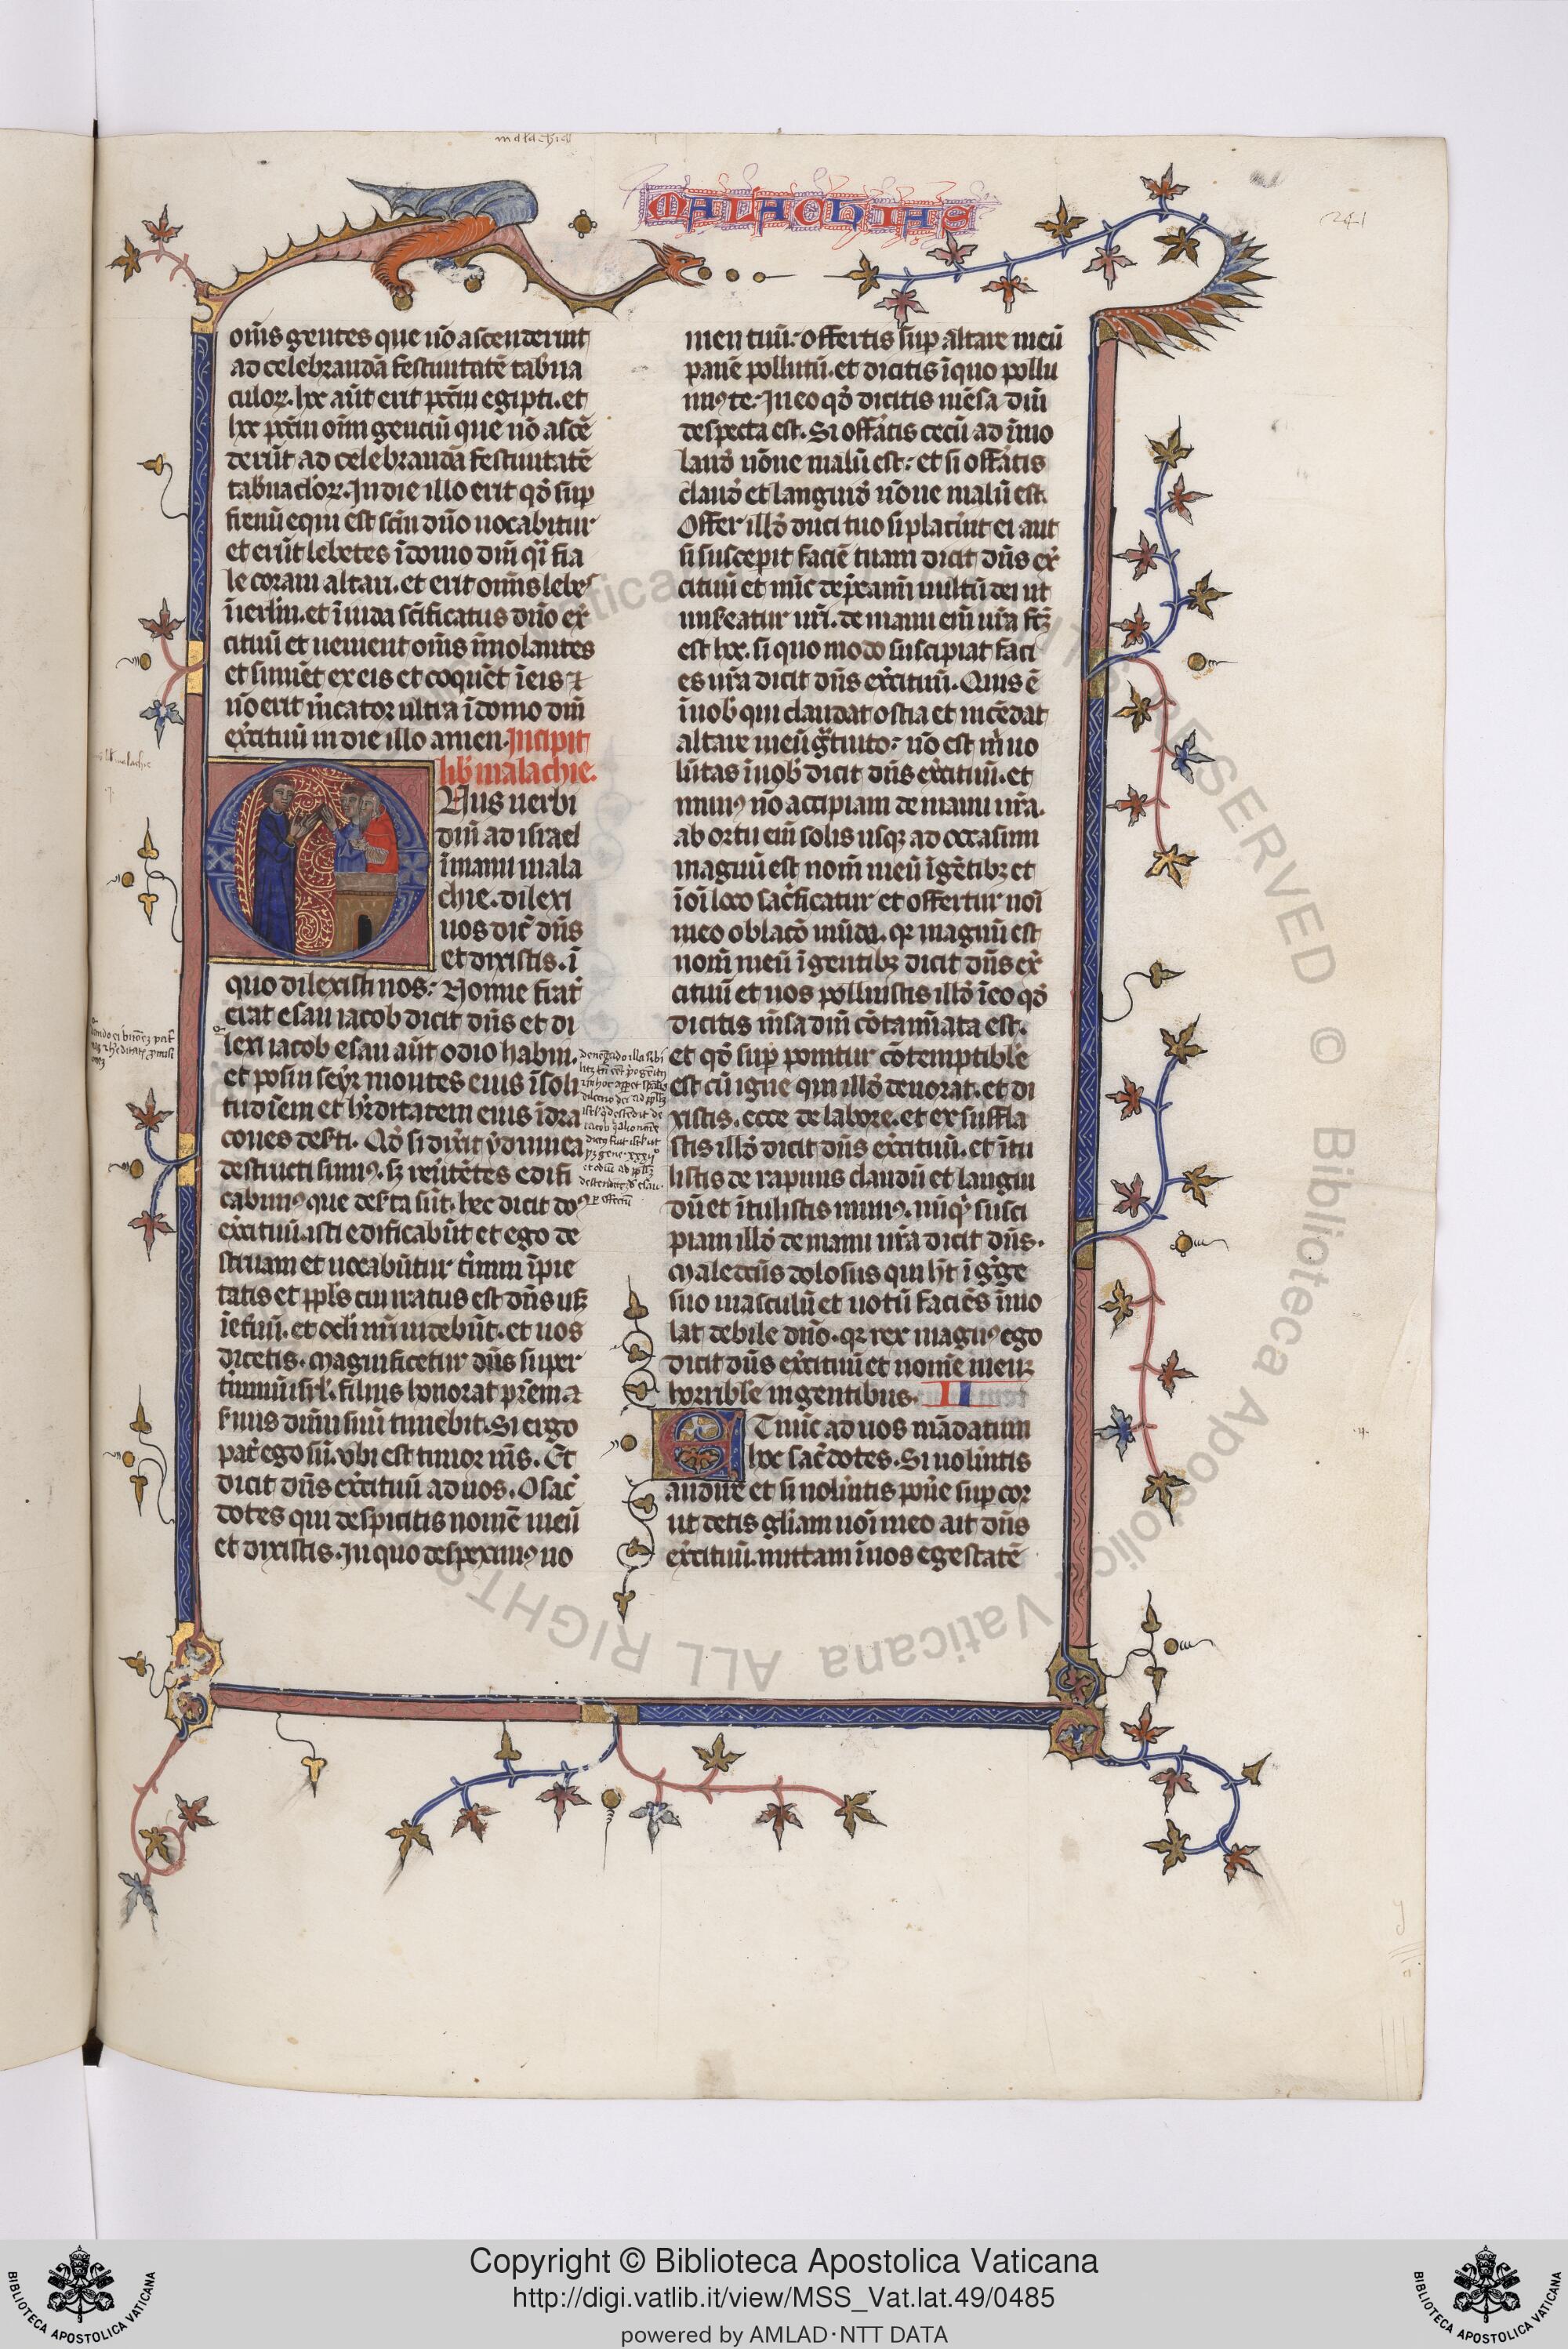 malachias
MALACHIAS
241
om̄s gentes que nō ascenderint
ad celebrandā festiuitatē tab̄na
culoꝝ. hec aūt erit pctm̄ egipti. et
hec pctm̄ om̄m gentiū que nō ascē
derūt ad celebrandā festiuitatē
tab̄naclōꝝ. In die illo erit qd̄ sup
frenū equi est scm̄ dn̄o uocabitur
et erūt lebetes ī domo dn̄i q̄i fia
le coram altari. et erit om̄is lebes
ī ierlm̄. et ī iuda scīficatus dn̄o ex̄
cituū et uenient om̄s īmolantes
et sinuēt ex eis et coquēt ī eis ⁊
nō erit m̄cator ultra ī domo dn̄i
ex̄cituū in die illo amen. Incipit
lib̄ malachie.
Nus uerbi
dn̄i ad israel
ī manu mala
chie. dilexi
uos dic̄ dn̄s
et dixistis. ī
quo dilexisti nos: Nonne frat̄
erat esau iacob dicit dn̄s et di
lexi iacob esau aūt odio habui.
et posui seyr montes eius ī soli
tudīem et hr̄ditatem eius ī dra
cones des̄ti. Qd̄ si dix̄it ydumea
destructi sumꝰ. sꝫ reūtētes edifi
cabimꝰ que des̄ta sūt. hec dicit dn̄s
ex̄cituū. isti edificabūt et ego de
struam et uocabūtur t̄mini īpie
tatis et ppl̄s cui iratus est dn̄s usqꝫ
ī et̄nū. et ocli nr̄i uidebūt. et uos
dicetis. Magnificetur dn̄s super
t̄minū isrl̄. filius honorat pr̄em ⁊
s̄uus dn̄m suū timebit. Si ergo
pat̄ ego sū. ubi est timor m̄s. Et
dicit dn̄s ex̄cituū ad uos. O sac̄
dotes qui despicitis nomē meū
et dixistis. In quo despeximꝰ no
men tuū: offertis sup altare meū
panē pollutū. et dicitis ī quo pollu
imꝰ te: In eo qd̄ dicitis mēsa dn̄i
despecta est. Si offātis cecū ad īmo
land̄ nōne malū est: et si offātis
claud̄ et languid̄ nōne malū est.
Offer illd̄ duci tuo si placūit ei aut
si susceperit faciē tuam dicit dn̄s ex̄
cituū et nūc dep̄camī uultū dei ut
miseatur ur̄i. de manu eī ur̄a fc̄ꝫ
est hec. si quo modo suscipiat faci
es ur̄as dicit dn̄s ex̄cituū. Quis ē
ī uob̄ qui claudat ostia et incēdat
altare meū gͣtuito: nō est m̄ uo
lūtas ī uob̄ dicit dn̄s ex̄cituū. et
munꝰ nō accipiam de manu ur̄a.
ab ortu eī solis usqꝫ ad occasum
magnū est nom̄ meū ī gētibꝫ et
ī oī loco sac̄ficatur et offertur noī
meo oblacō mūda. qꝛ magnū est
nom̄ meū ī gentibꝫ dicit dn̄s ex̄
cituū et uos polluistis illd̄ ī eo qd̄
dicitis m̄sa dn̄i cōtamīata est.
et qd̄ sup ponitur cōtemptible
est cū igne qui illd̄ deuorat. et di
xistis. ecce de labore. et exsuffla
stis illd̄ dicit dn̄s ex̄cituū. et ītu
listis de rapinis claudū et langui
dū et ītulistis munꝰ. nūqͥd susci
piam illd̄ de manu ur̄a dicit dn̄s.
Maledcūs dolosus qui hēt ī ḡge
suo masculū et uotū faciēs īmo
lat debile dn̄o. qꝛ rex magnꝰ ego
dicit dn̄s ex̄cituū et nomē meuꝫ
horrible in gentibus. II
ET nūc ad uos mādatum
hoc sac̄dotes. Si nolūitis
audire et si nolūitis pōne sup cor
ut detis gl̄iam noī meo ait dn̄s
ex̄cituū. mittam ī uos egestatē
Copyright © Biblioteca Apostolica Vaticana
http://digi.vatlib.it/view/MSS_Vat.lat.49/0485
powered by AMLAD·NTT DATA
BIBLIOTECA APOSTOLICA VATICANA
BIBLIOTECA APOSTOLICA VATICANA
© Biblioteca Apostolica Vaticana ALL RIGHTS RESERVED